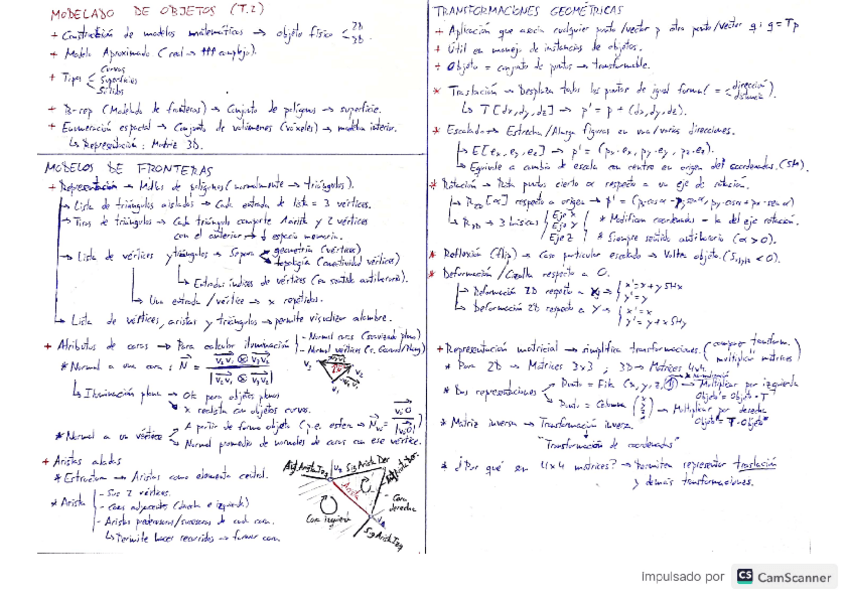 MODELADO DE OBJETOS (T.2)
+ Construcción de modelos matemáticos → objeto físico < 2D 3D
+ Modelo Aproximado (real → ↑↑↑ complejo).
+ Tipos < Curvas
Superficies
Sólidos
+ B-rep (Modelado de fronteras) → Conjunto de polígonos → superficie.
+ Enumeración espacial → Conjunto de volúmenes (vóxeles) → modela interior.
↳ Representación: Matriz 3D.
MODELOS DE FRONTERAS
+ Representación → Miles de polígonos (normalmente → triángulos).
→ Lista de triángulos aislados → Cada entrada de lista = 3 vértices.
→ Tiras de triángulos → Cada triángulo comparte 1 arista y 2 vértices
con el anterior → ↓ espacio memoria.
→ Lista de vértices y triángulos → Separa < geometría (vértices)
topología (conectividad vértices)
↳ Entradas índices de vértices (en sentido antihorario).
↳ Una entrada / vértice → x repetidos.
↳ Lista de vértices, aristas y triángulos → permite visualizar alambre.
+ Atributos de caras → Para calcular iluminación
- Normal caras (
- Normal vértices (
* Normal a una cara:
↳ Iluminación plana → Ok para objetos planos
x realista en objetos curvos.
* Normal a un vértice
A partir de forma objeto (p.e. esfera →
Normal promedio de normales de caras con ese vértice.
+ Aristas aladas
* Estructura → Aristas como elemento central.
* Arista
- Sus 2 vértices.
- Caras adyacentes (derecha e izquierda)
- Aristas predecesoras/sucesoras de cada cara.
↳ Permite hacer recorridos → formar cara.
Arista
Cara izquierda
Cara derecha
SigAristDer
SigAristIzq
TRANSFORMACIONES GEOMÉTRICAS
+ Aplicación que asocia cualquier punto/vector p otro punto/vector q: q = Tp
+ Útil en manejo de instancias de objetos.
+ Objeto = conjunto de puntos → transformable.
* Traslación → Desplaza todos los puntos de igual forma (= < dirección distancia).
↳ T[dx, dy, dz] → p' = p + (dx, dy, dz).
* Escalado → Estrecha/Alarga figuras en una/varias direcciones.
→ E[ex, ey, ez] → p' = (px·ex, py·ey, pz·ez).
↳ Equivale a cambio de escala con centro en origen del coordenadas.
* Rotación → Rota puntos cierto α respecto a un eje de rotación.
→ R2D[α] respecto a origen → p' = (px·cosα - py·senα, py·cosα + px·senα)
↳ R3D → 3 básicas
Eje X
Eje Y
Eje Z
* Modifican coordenadas - la del eje rotación.
* Siempre sentido antihorario (α > 0).
* Reflexión (flip) → Caso particular escalado → Voltea objeto.
* Deformación / Cizalla respecto a O.
→ Deformación 2D respecto a X → { x' = x + y SHx
y' = y
↳ Deformación 2D respecto a Y → { x' = x
y' = y + x SHy
+ Representación matricial → simplifica transformaciones. (componer transform. multiplicar matrices)
* Para 2D → Matrices 3x3; 3D → Matrices 4x4.
* Dos representaciones
Punto = Fila (x, y, z, 1) → Multiplicar por izquierda
Objeto' = Objeto · T
Punto = Columna → Multiplicar por derecha
Objeto' = T · Objeto
* Matriz inversa → Transformación inversa.
"Transformación de coordenadas"
* ¿Por qué en 4x4 matrices? → Permiten representar traslación
y demás transformaciones.
Impulsado por CS CamScanner